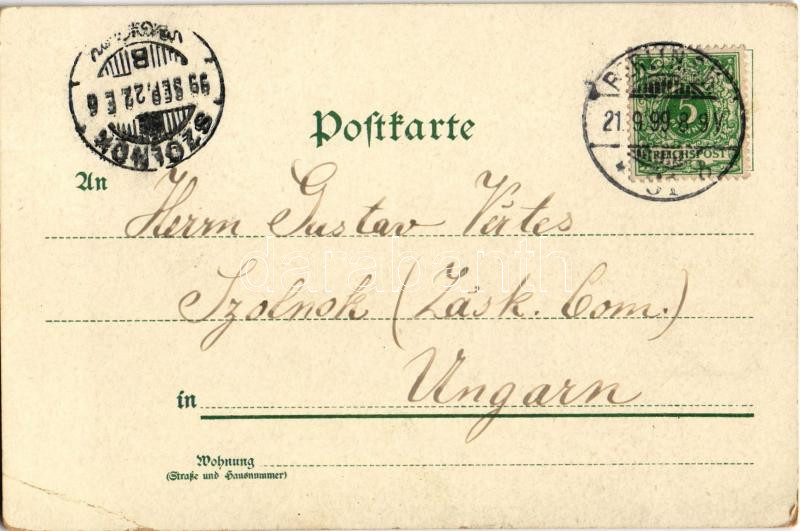 SZOLNOK
99 SEP.22.E 6
B
BERLIN
21.9.99 8-9V.
5
REICHSPOST
Postkarte
An
Herrn Gustav Vértes
Szolnok (Zásk. Com.)
in Ungarn
Wohnung
(Straße und Hausnummer)
darabanth